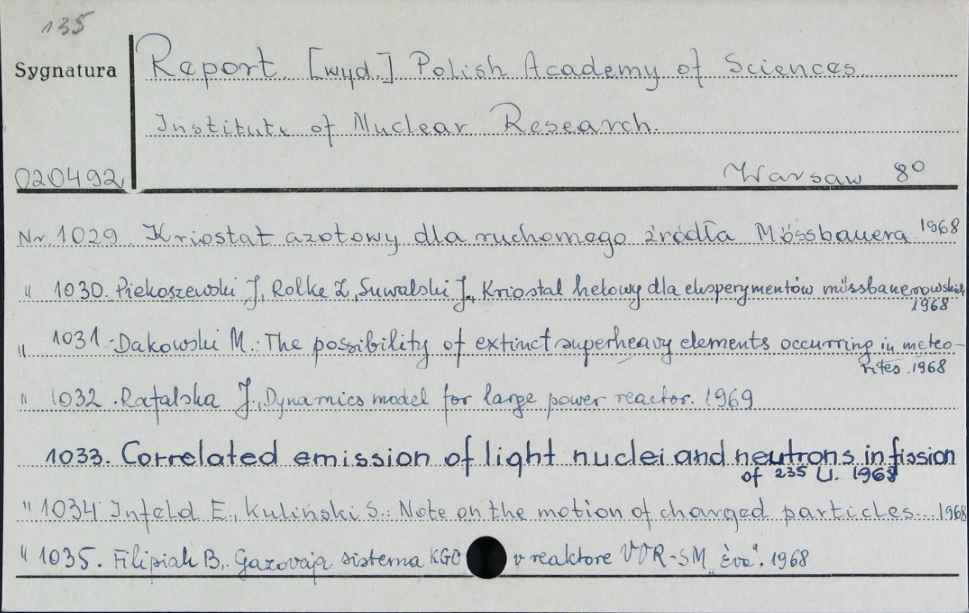 135
Sygnatura
Report [wyd.] Polish Academy of Sciences
Institute of Nuclear Research.
020492
Warsaw 8°
Nr. 1029 Kriostat azotowy dla ruchomego źródła Mössbauera 1968
" 1030. Piekoszewski J., Rolke Z., Suwalski J., Kriostat helowy dla eksperymentów mössbauerowskich
1968
" 1031. Dakowski M.: The possibility of extinct superheavy elements occurring in meteo-
rites. 1968
" 1032. Rafalska J., Dynamics model for large power reactor. 1969
1033. Correlated emission of light nuclei and neutrons in fission
of 235 U. 1968
" 1034 Infeld E., Kuliński S.: Note on the motion of charged particles... 1968
" 1035. Filipiak B., Gazovaja sistema KGO v reaktore VVR-SM „Eva". 1968